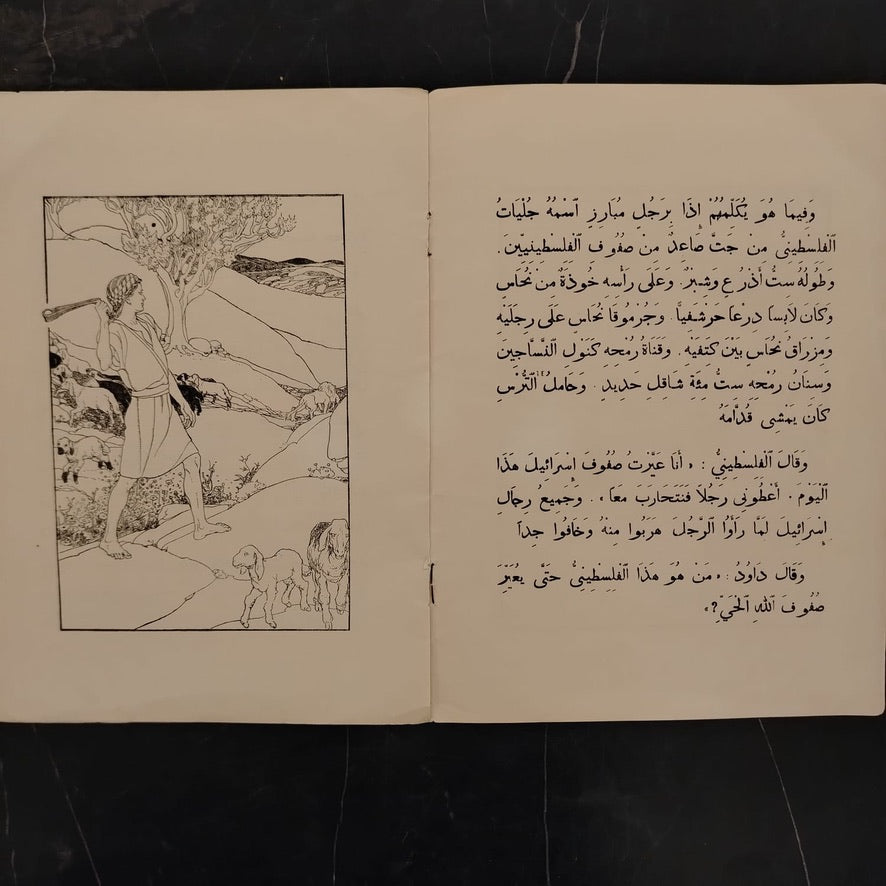 وَفِيمَا هُوَ يُكَلِّمُهُمْ إِذَا بِرَجُلٍ مُبَارِزٍ ٱسْمُهُ جُلْيَاتُ
ٱلْفِلِسْطِينِيُّ مِنْ جَتَّ صَاعِدٌ مِنْ صُفُوفِ ٱلْفِلِسْطِينِيِّينَ .
وَطُولُهُ سِتُّ أَذْرُعٍ وَشِبْرٌ . وَعَلَى رَأْسِهِ خُوذَةٌ مِنْ نُحَاسٍ
وَكَانَ لَابِسًا دِرْعًا حَرْشَفِيًّا . وَجُرْمُوقَا نُحَاسٍ عَلَى رِجْلَيْهِ
وَمِزْرَاقُ نُحَاسٍ بَيْنَ كَتِفَيْهِ . وَقَنَاةُ رُمْحِهِ كَنَوْلِ ٱلنَّسَّاجِينَ
وَسِنَانُ رُمْحِهِ سِتُّ مِئَةِ شَاقِلِ حَدِيدٍ . وَحَامِلُ ٱلتُّرْسِ
كَانَ يَمْشِي قُدَّامَهُ
وَقَالَ ٱلْفِلِسْطِينِيُّ : « أَنَا عَيَّرْتُ صُفُوفَ إِسْرَائِيلَ هَذَا
ٱلْيَوْمَ . أَعْطُونِي رَجُلاً فَنَتَحَارَبَ مَعًا » . وَجَمِيعُ رِجَالِ
إِسْرَائِيلَ لَمَّا رَأَوُا ٱلرَّجُلَ هَرَبُوا مِنْهُ وَخَافُوا جِدًّا
وَقَالَ دَاوُدُ : « مَنْ هُوَ هَذَا ٱلْفِلِسْطِينِيُّ حَتَّى يُعَيِّرَ
صُفُوفَ ٱللهِ ٱلْحَيِّ ؟ »